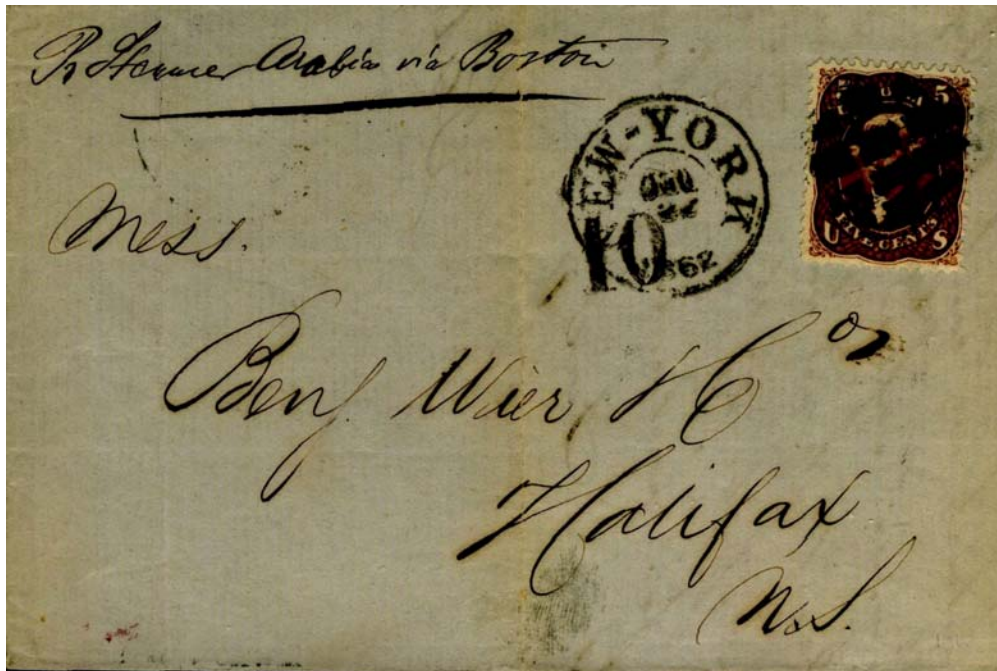 Pr Steamer Arabia via Boston
NEW-YORK
22
1862
10
5 U 5
FIVE CENTS
U S
Mess.
Benj Wier & Co
Halifax
N.S.